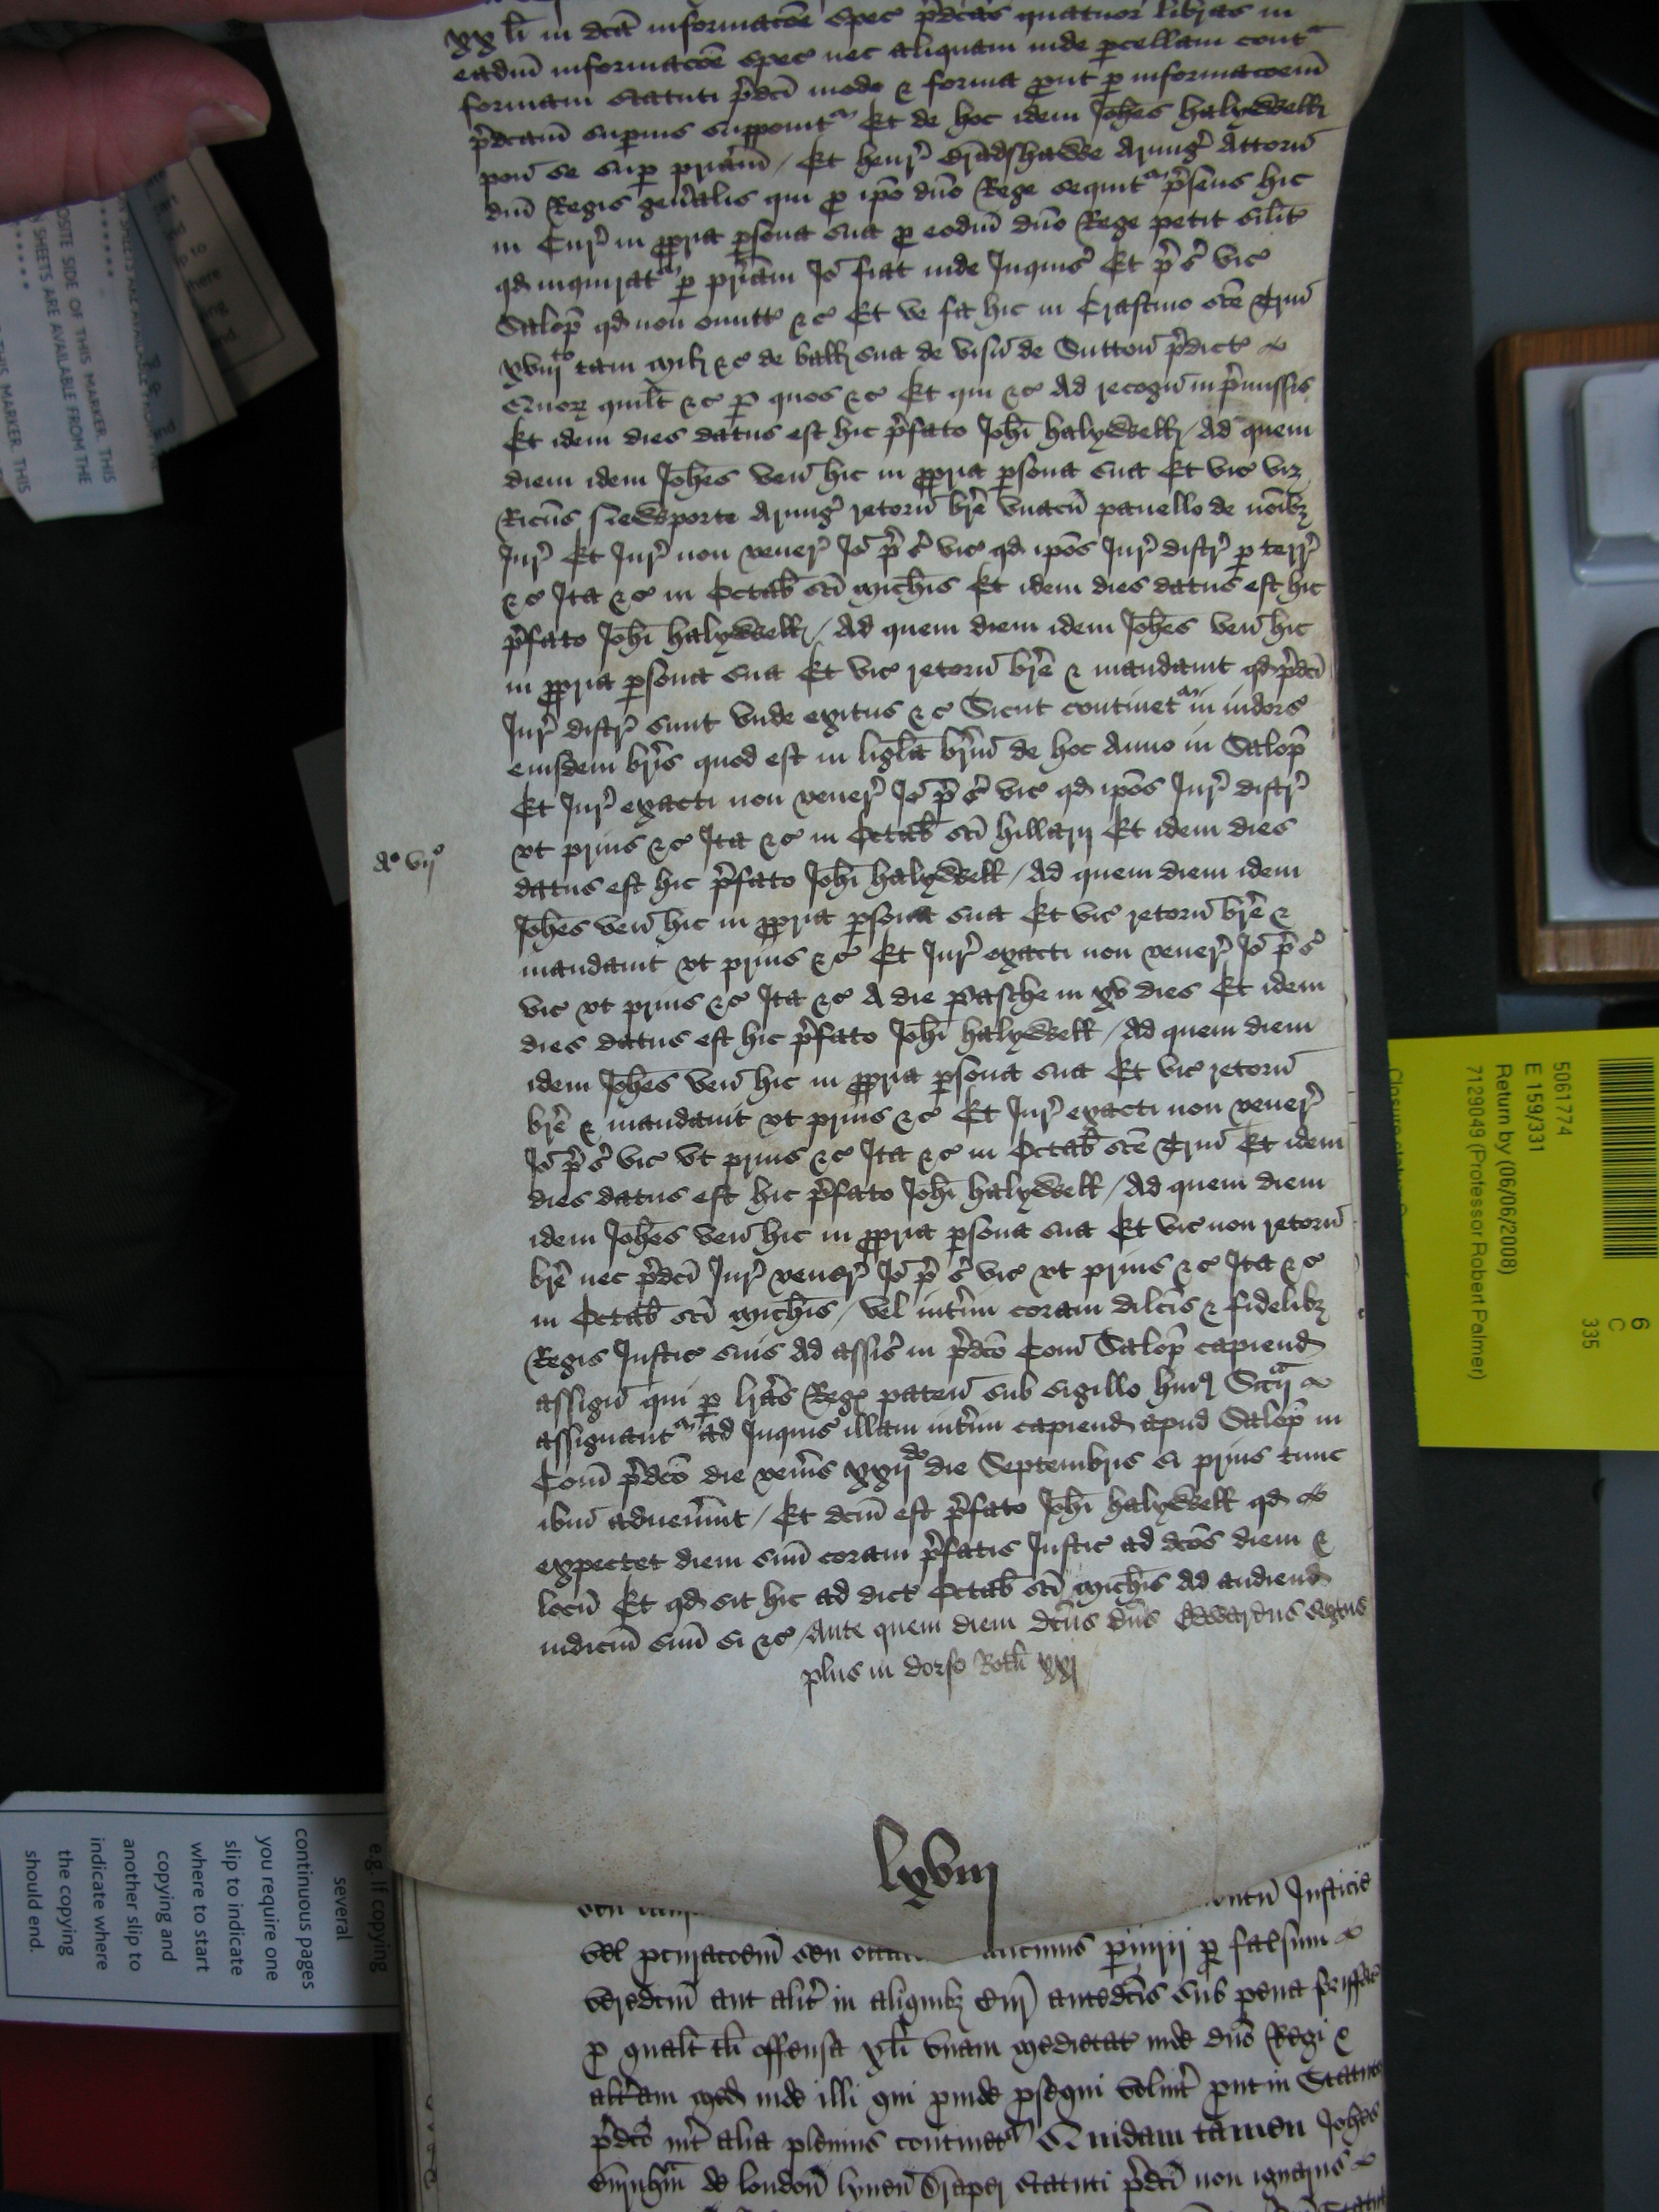 xx li in dcta informacoe spec pdcas quatuor libras in
eadm informacoe spec nec aliquam inde pcellam cont
formam statuti pdci modo & forma put p informacoem
pdcam supius supponit Et de hoc idem Johes halywell
pon se sup priam / Et henr Bradshawe Armig Attorn
dni Regis genalis qui p ipo dno Rege sequit psens hic
in Cur in ppria psona sua p eodm dno Rege petit silit
qd inquirat p priam Jo fiat inde Inquis Et p c vic
Salop qd non omitt &c Et ve fa hic in Crastino sce Trin
xviij to tam milit &c de ball sua de visu de Sutton pdict
Quor quilt &c p quos &c Et qui &c Ad recogn in pmissis
Et idem dies datus est hic pfato Johi halywell / Ad quem
diem idem Johes ven hic in ppria psona sua Et vic viz
Ricus Newporte Armig retorn bre vnacu panello de noibz
Jur Et Jur non vener Jo p c vic qd ipos Jur distr p terr
&c Ita &c in Octab sci Michis Et idem dies datus est hic
pfato Johi halywell / Ad quem diem idem Johes ven hic
in ppria psona sua Et vic retorn bre & mandauit qd pdci
Jur distr sunt vnde exitus &c Sicut continet in indors
eiusdem bris quod est in ligula brm de hoc Anno in Salop
Et Jur exacti non vener Jo p c vic qd ipos Jur distr
vt prius &c Ita &c in Octab sci hillarij Et idem dies
Ao vijo
datus est hic pfato Johi halywell / Ad quem diem idem
Johes ven hic in ppria psona sua Et vic retorn bre &
mandauit vt prius &c Et Jur exacti non vener Jo p c
vic vt prius &c Ita &c A die pasche in xv dies Et idem
dies datus est hic pfato Johi halywell / Ad quem diem
idem Johes ven hic in ppria psona sua Et vic retorn
bre & mandauit vt prius &c Et Jur exacti non vener
Jo p c vic vt prius &c Ita &c in Octab sce Trin Et idem
dies datus est hic pfato Johi halywell / Ad quem diem
idem Johes ven hic in ppria psona sua Et vic non retorn
bre nec pdci Jur vener Jo p c vic vt prius &c Ita &c
in Octab sci Michis / vel intim coram dilcis & fidelibz
Regis Justic suis Ad assis in pdco Com Salop capiend
assign qui p lras Reg paten sub sigillo hui Sccij
assignant ad Inquis illam intim capiend apud Salop in
Com pdco die venis xxij do die Septembris si prius tunc
ibm aduenint / Et dcm est pfato Johi halywell qd
expectet diem suu coram pfatis Justic ad dcos diem &
locu Et qd sit hic ad dict Octab sci Michis Ad audiend
iudiciu suu si &c / Ante quem diem dcus dns Edwardus sextus
plus in dorso Rotli xxj
lxviij
Justicie
vel seu piurij p falsum
veredcm aut alit in aliquibz Cur antedcis sub pena forisfac
p qualt tli offensa xli vnam medietat inde dno Regi &
altam med inde illi qui pinde psequi volint put in Statuto
pdco int alia plenius continet Quidam tamen Johes
de london lynen draper statuti pdci non ignarus
5061774
E 159/331
Return by (06/06/2008)
7129049 (Professor Robert Palmer)
6
C
335
e.g. If copying
several
continuous pages
you require one
slip to indicate
where to start
copying and
another slip to
indicate where
the copying
should end.
OSITE SIDE OF THIS MARKER. THIS
SHEETS ARE AVAILABLE FROM THE
THIS MARKER. THIS